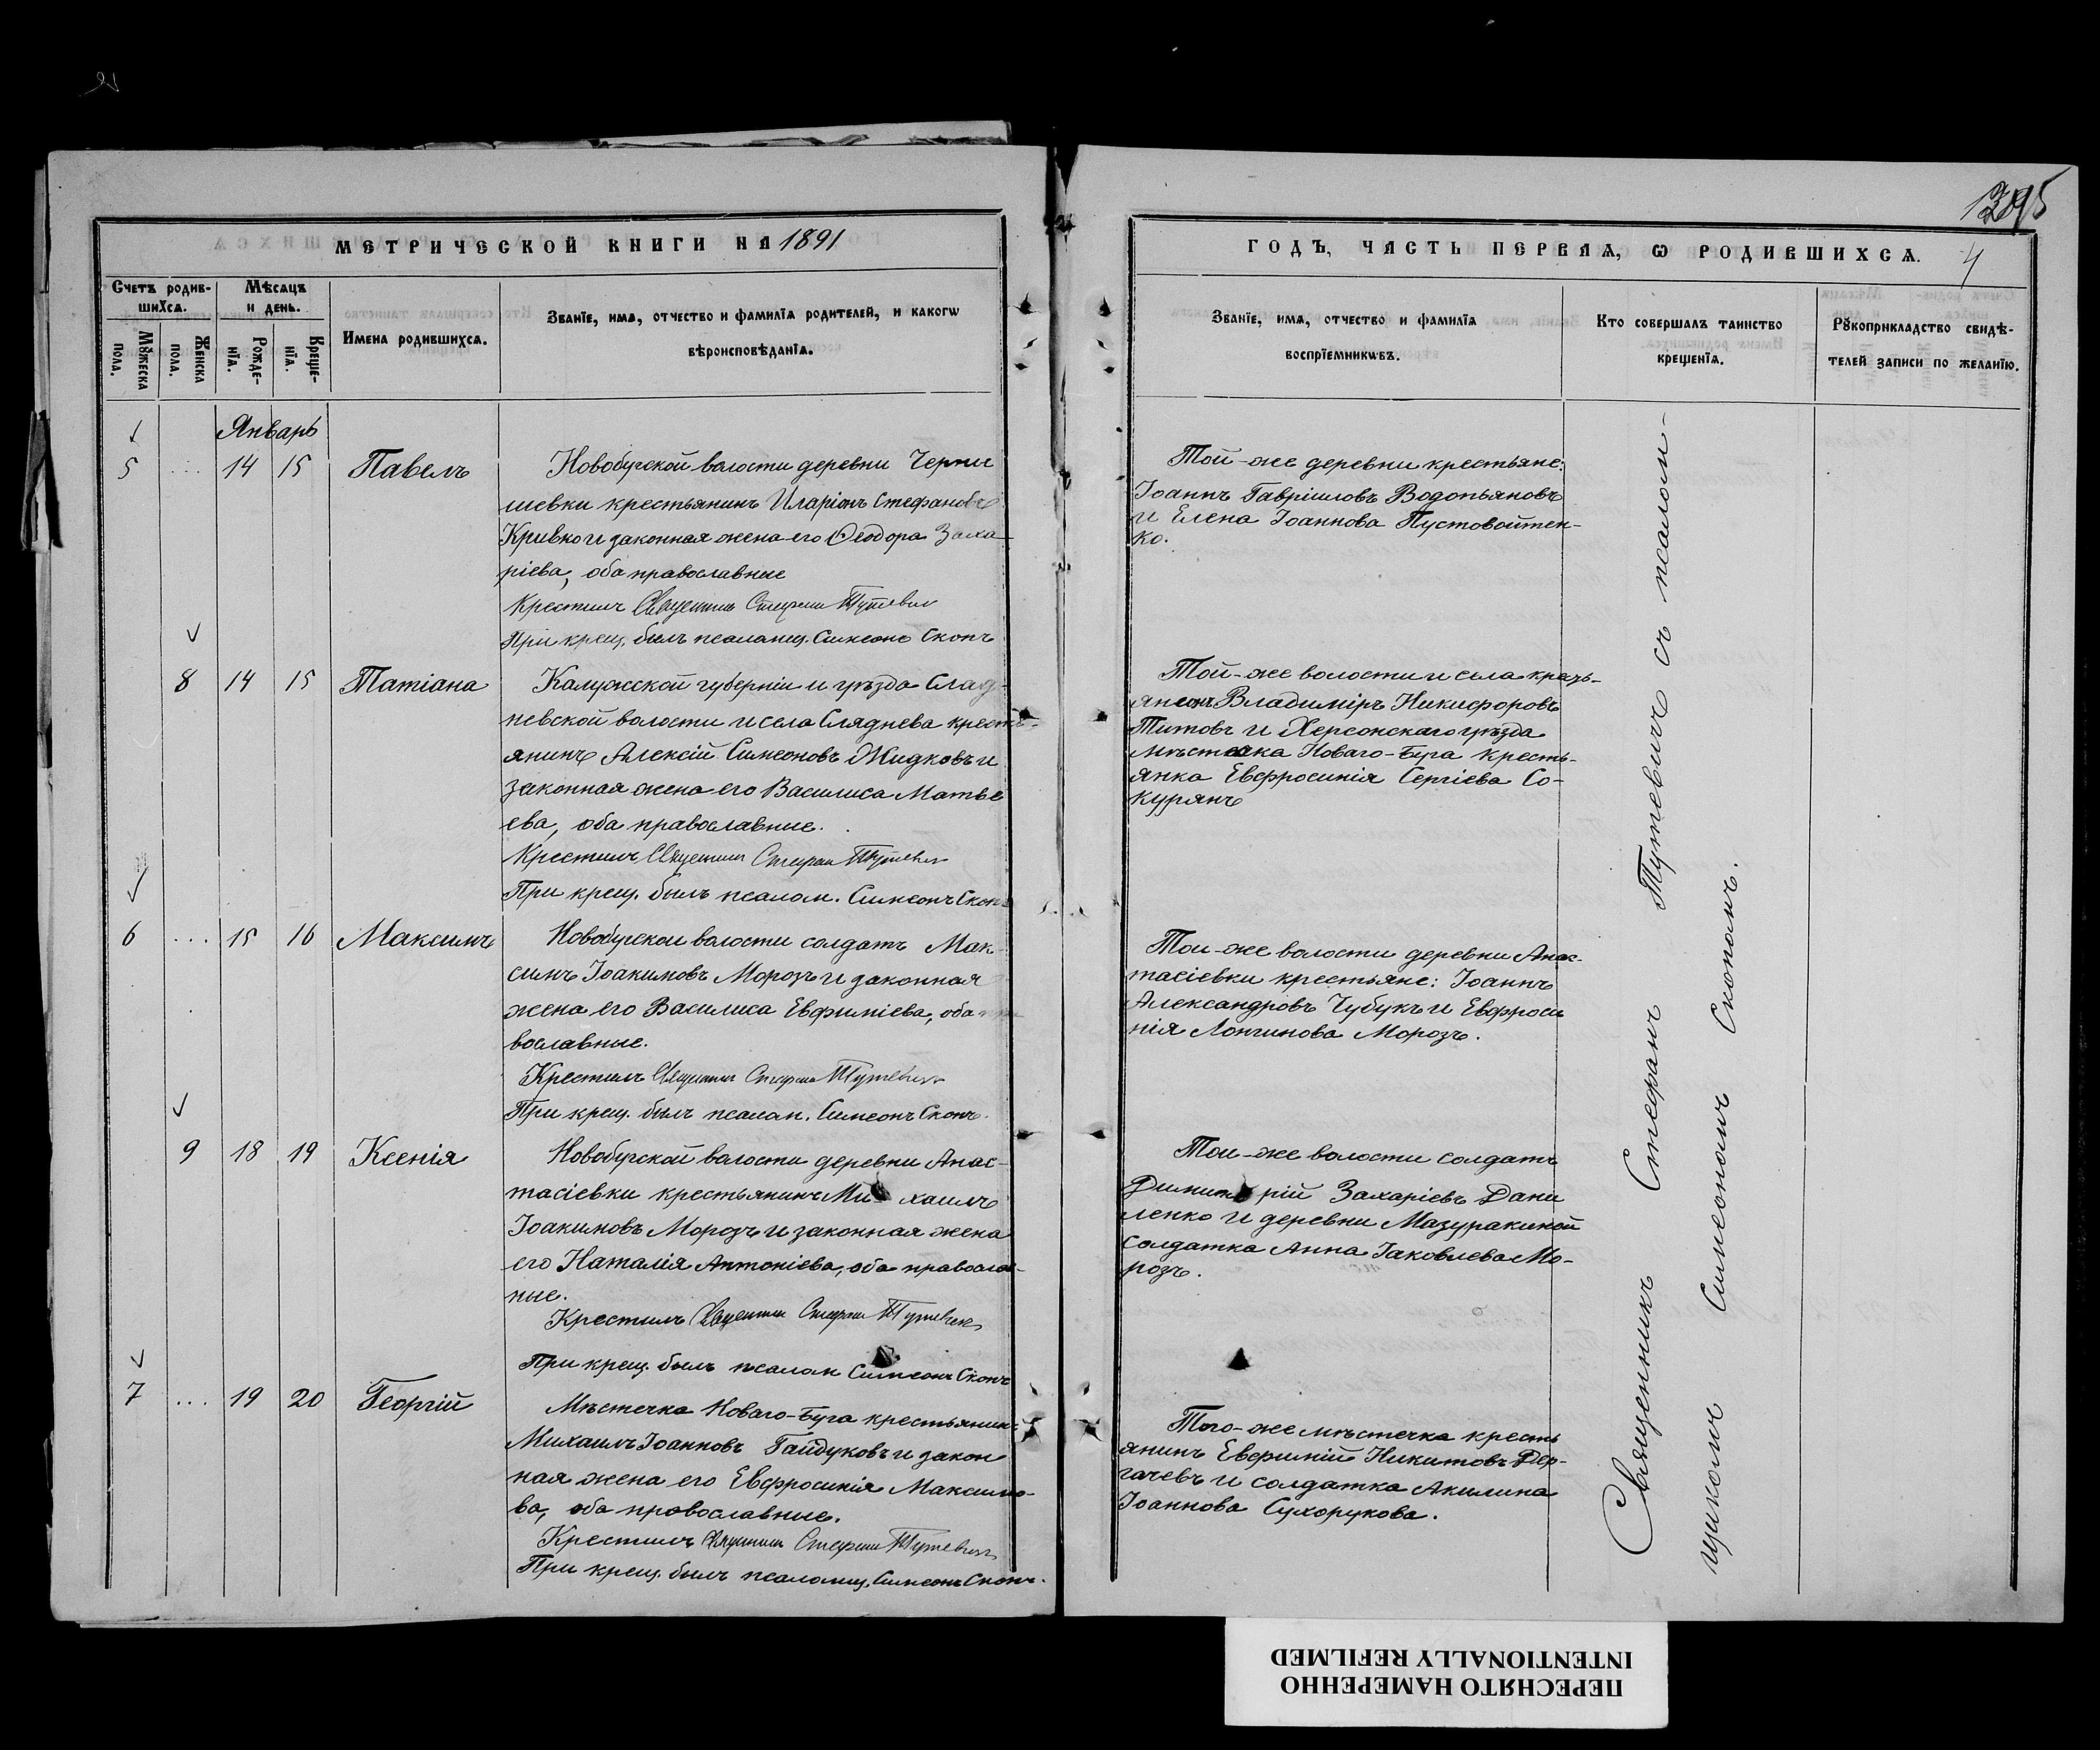 1395
4
МЕТРИЧЕСКОЙ КНИГИ НА 1891
ГОДЪ, ЧАСТЬ ПЕРВАЯ, Ѡ РОДИВШИХСѦ.
Счетъ родив-
шихсѧ.
Мꙋжеска
пола.
Женска
пола.
Мѣсѧцъ
и день.
Рожде-
нїѧ.
Креще-
нїѧ.
Имена родившихсѧ.
Званїе, имѧ, отчество и фамилїѧ родителей, и какогѡ
вѣроисповѣданїѧ.
Званїе, имѧ, отчество и фамилїѧ
воспрїемникѡвъ.
Кто совершалъ таинство
крещенїѧ.
Рꙋкоприкладство свидѣ-
телей записи по желанїю.
Январь
5 ... 14 15 Павелъ
Новобугской волости деревни Черны
шевки крестьянинъ Иларіонъ Стефановъ
Кривко и законная жена его Ѳеодора Заха-
ріева, оба православные
Крестилъ Священникъ Стефанъ Тутевич
При крещ. былъ псаломщ. Симеонъ Скопъ
Той-же деревни крестьяне:
Іоаннъ Гавріиловъ Водопьяновъ
и Елена Іоаннова Пустовойтен-
ко.
8 14 15 Татіана
Калужской губерніи и уѣзда Слад-
невской волости и села Сляднева кресть-
янинъ Алексій Симеоновъ Жидковъ и
законная жена его Василиса Матве
ева, оба православные.
Крестилъ Священникъ Стефанъ Тутевич
При крещ. былъ псалом. Симеонъ Скопъ
Той-же волости и села кресть-
янинъ Владиміръ Никифоровъ
Титовъ и Херсонскаго уѣзда
мѣстечка Новаго-Буга кресть-
янка Евфросинія Сергіева Со-
курянъ
6 ... 15 16 Максимъ
Новобугской волости солдатъ Мак-
симъ Іоакимовъ Морозъ и законная
жена его Василиса Евфиміева, оба пра
вославные.
Крестилъ Священникъ Стефанъ Тутевичъ
При крещ. былъ псалом. Симеонъ Скопъ.
Той-же волости деревни Анас-
тасіевки крестьяне: Іоаннъ
Александровъ Чубукъ и Евфроси
нія Лонгинова Морозъ.
9 18 19 Ксенія
Новобугской волости деревни Анас-
тасіевки крестьянинъ Михаилъ
Іоакимовъ Морозъ и законная жена
его Наталія Антоніева, оба православ-
ные.
Крестилъ Священникъ Стефанъ Тутевичъ
При крещ. былъ псалом Симеонъ Скопъ
Той-же волости солдатъ
Димитрій Захаріевъ Дани
ленко и деревни Мазуракиной
солдатка Анна Іаковлева Мо-
розъ.
7 ... 19 20 Георгій
Мѣстечка Новаго-Буга крестьянинъ
Михаилъ Іоанновъ Гайдуковъ и закон
ная жена его Евфросинія Максимо-
ва, оба православные.
Крестилъ Священникъ Стефанъ Тутевичъ
При крещ. былъ псаломщ. Симеонъ Скопъ.
Того-же мѣстечка кресть
янинъ Евфимій Никитовъ Дер-
гачевъ и солдатка Акилина
Іоаннова Сухорукова.
Священникъ Стефанъ Тутевичъ съ псалом-
щикомъ Симеономъ Скопомъ.
ПЕРЕСНЯТО НАМЕРЕННО
INTENTIONALLY REFILMED